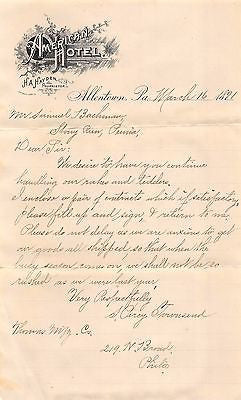 AMERICAN
HOTEL.
H.A. HAYDEN,
PROPRIETOR.
Allentown, Pa. March 16 1891
Mr Samuel Bachman
Stony Run, Penna,
Dear Sir:
We desire to have you continue
handling our rakes and tedders.
I enclose a pair of contracts which if satisfactory
please fill up and sign & return to me.
Please do not delay as we are anxious to get
our goods all shipped, so that when the
busy season comes on, we shall not be so
rushed as we were last year.
Very Respectfully
Townsend
Thomas M'f'g. Co.
219. N. Broad.
Phila